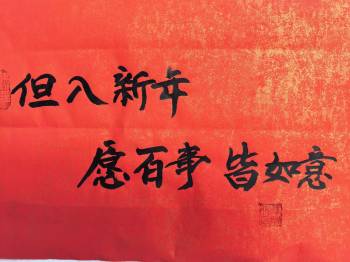 但入新年
愿百事皆如意